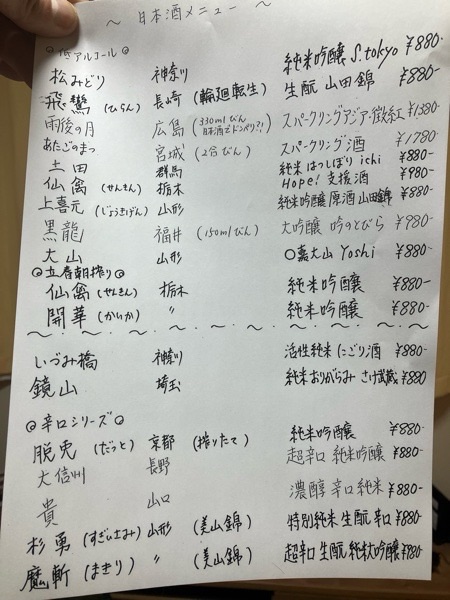 ～ 日本酒メニュー ～
◎低アルコール◎
松みどり 神奈川 純米吟醸 S.tokyo ¥880-
飛鸞(ひらん) 長崎(輪廻転生) 生酛 山田錦 ¥880-
雨後の月 広島(330mlびん 日本酒でドンペリ?!) スパークリングアジア・微紅 ¥1380-
あたごのまつ 宮城(2合びん) スパークリング酒 ¥1780-
土田 群馬 純米 はつしぼり ichi ¥880-
仙禽(せんきん) 栃木 Hope! 支援酒 ¥980-
上喜元(じょうきげん) 山形 純米吟醸 原酒 山田錦 ¥880-
黒龍 福井(150mlびん) 大吟醸 吟のとびら ¥980-
大山 山形 ○嘉大山 Yoshi ¥880-
◎立春朝搾り◎
仙禽(せんきん) 栃木 純米吟醸 ¥880-
開華(かいか) 〃 純米吟醸 ¥880-
いづみ橋 神奈川 活性純米 にごり酒 ¥880-
鏡山 埼玉 純米おりがらみ さけ武蔵 ¥880
◎辛口シリーズ◎
脱兎(だっと) 京都(搾りたて) 純米吟醸 ¥880-
大信州 長野 超辛口 純米吟醸 ¥880-
貴 山口 濃醇 辛口 純米 ¥880-
杉勇(すぎいさみ) 山形(美山錦) 特別純米 生酛 辛口 ¥880-
魔斬(まきり) 〃(美山錦) 超辛口 生酛 純米大吟醸 ¥880-